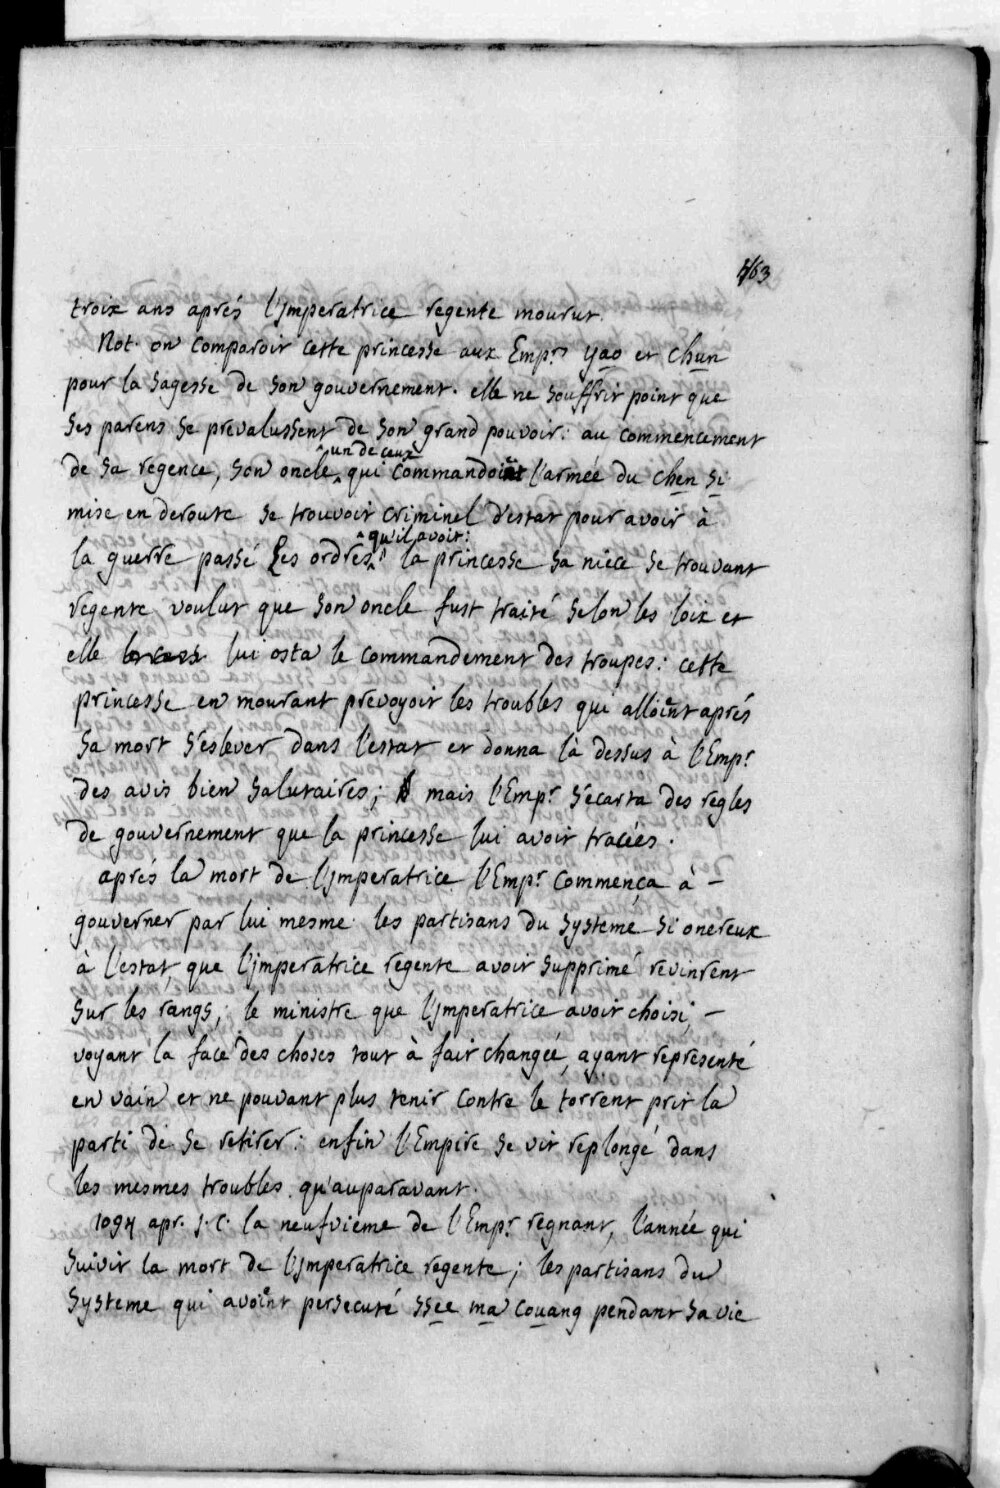 463
troix ans aprés l'jmperatrice regente mourut.
Not. on comparoit cette princesse aux Emp.rs yao et chun
pour la sagesse de son gouvernement. elle ne souffrit point que
ses parens se prevalussent de son grand pouvoir: au commencement
un de ceux
de sa regence, son oncle qui commandoient l'armée du chen si
mise en deroute se trouvoit criminel d'estat pour avoir à
qu'il avoit:
la guerre passé Les ordres la princesse sa niéce se trouvant
regente voulut que son oncle fust traité selon les loix et
elle lui osta le commandement des troupes: cette
princesse en mourant prevoyoit les troubles qui alloient aprés
sa mort s'eslever dans l'estat et donna là dessus à l'Emp.r
des avis bien salutaires; mais l'Emp.r s'ecarta des regles
de gouvernement que la princesse lui avoit tracées.
aprés la mort de l'jmperatrice l'Emp.r commença à –
gouverner par lui mesme. les partisans du systeme si onereux
à l'estat que l'jmperatrice regente avoit supprimé revinrent
sur les rangs; le ministre que l'jmperatrice avoit choisi, –
voyant la face des choses tout à fait changée, ayant representé
en vain et ne pouvant plus tenir contre le torrent prit la
parti de se retirer: enfin l'Empire se vit replongé dans
les mesmes troubles qu'auparavant.
1094 apr. j. C. la neufvieme de l'Emp.r regnant, l'année qui
suivit la mort de l'jmperatrice regente; les partisans du
systeme qui avoient persecuté ssee ma couang pendant sa vie